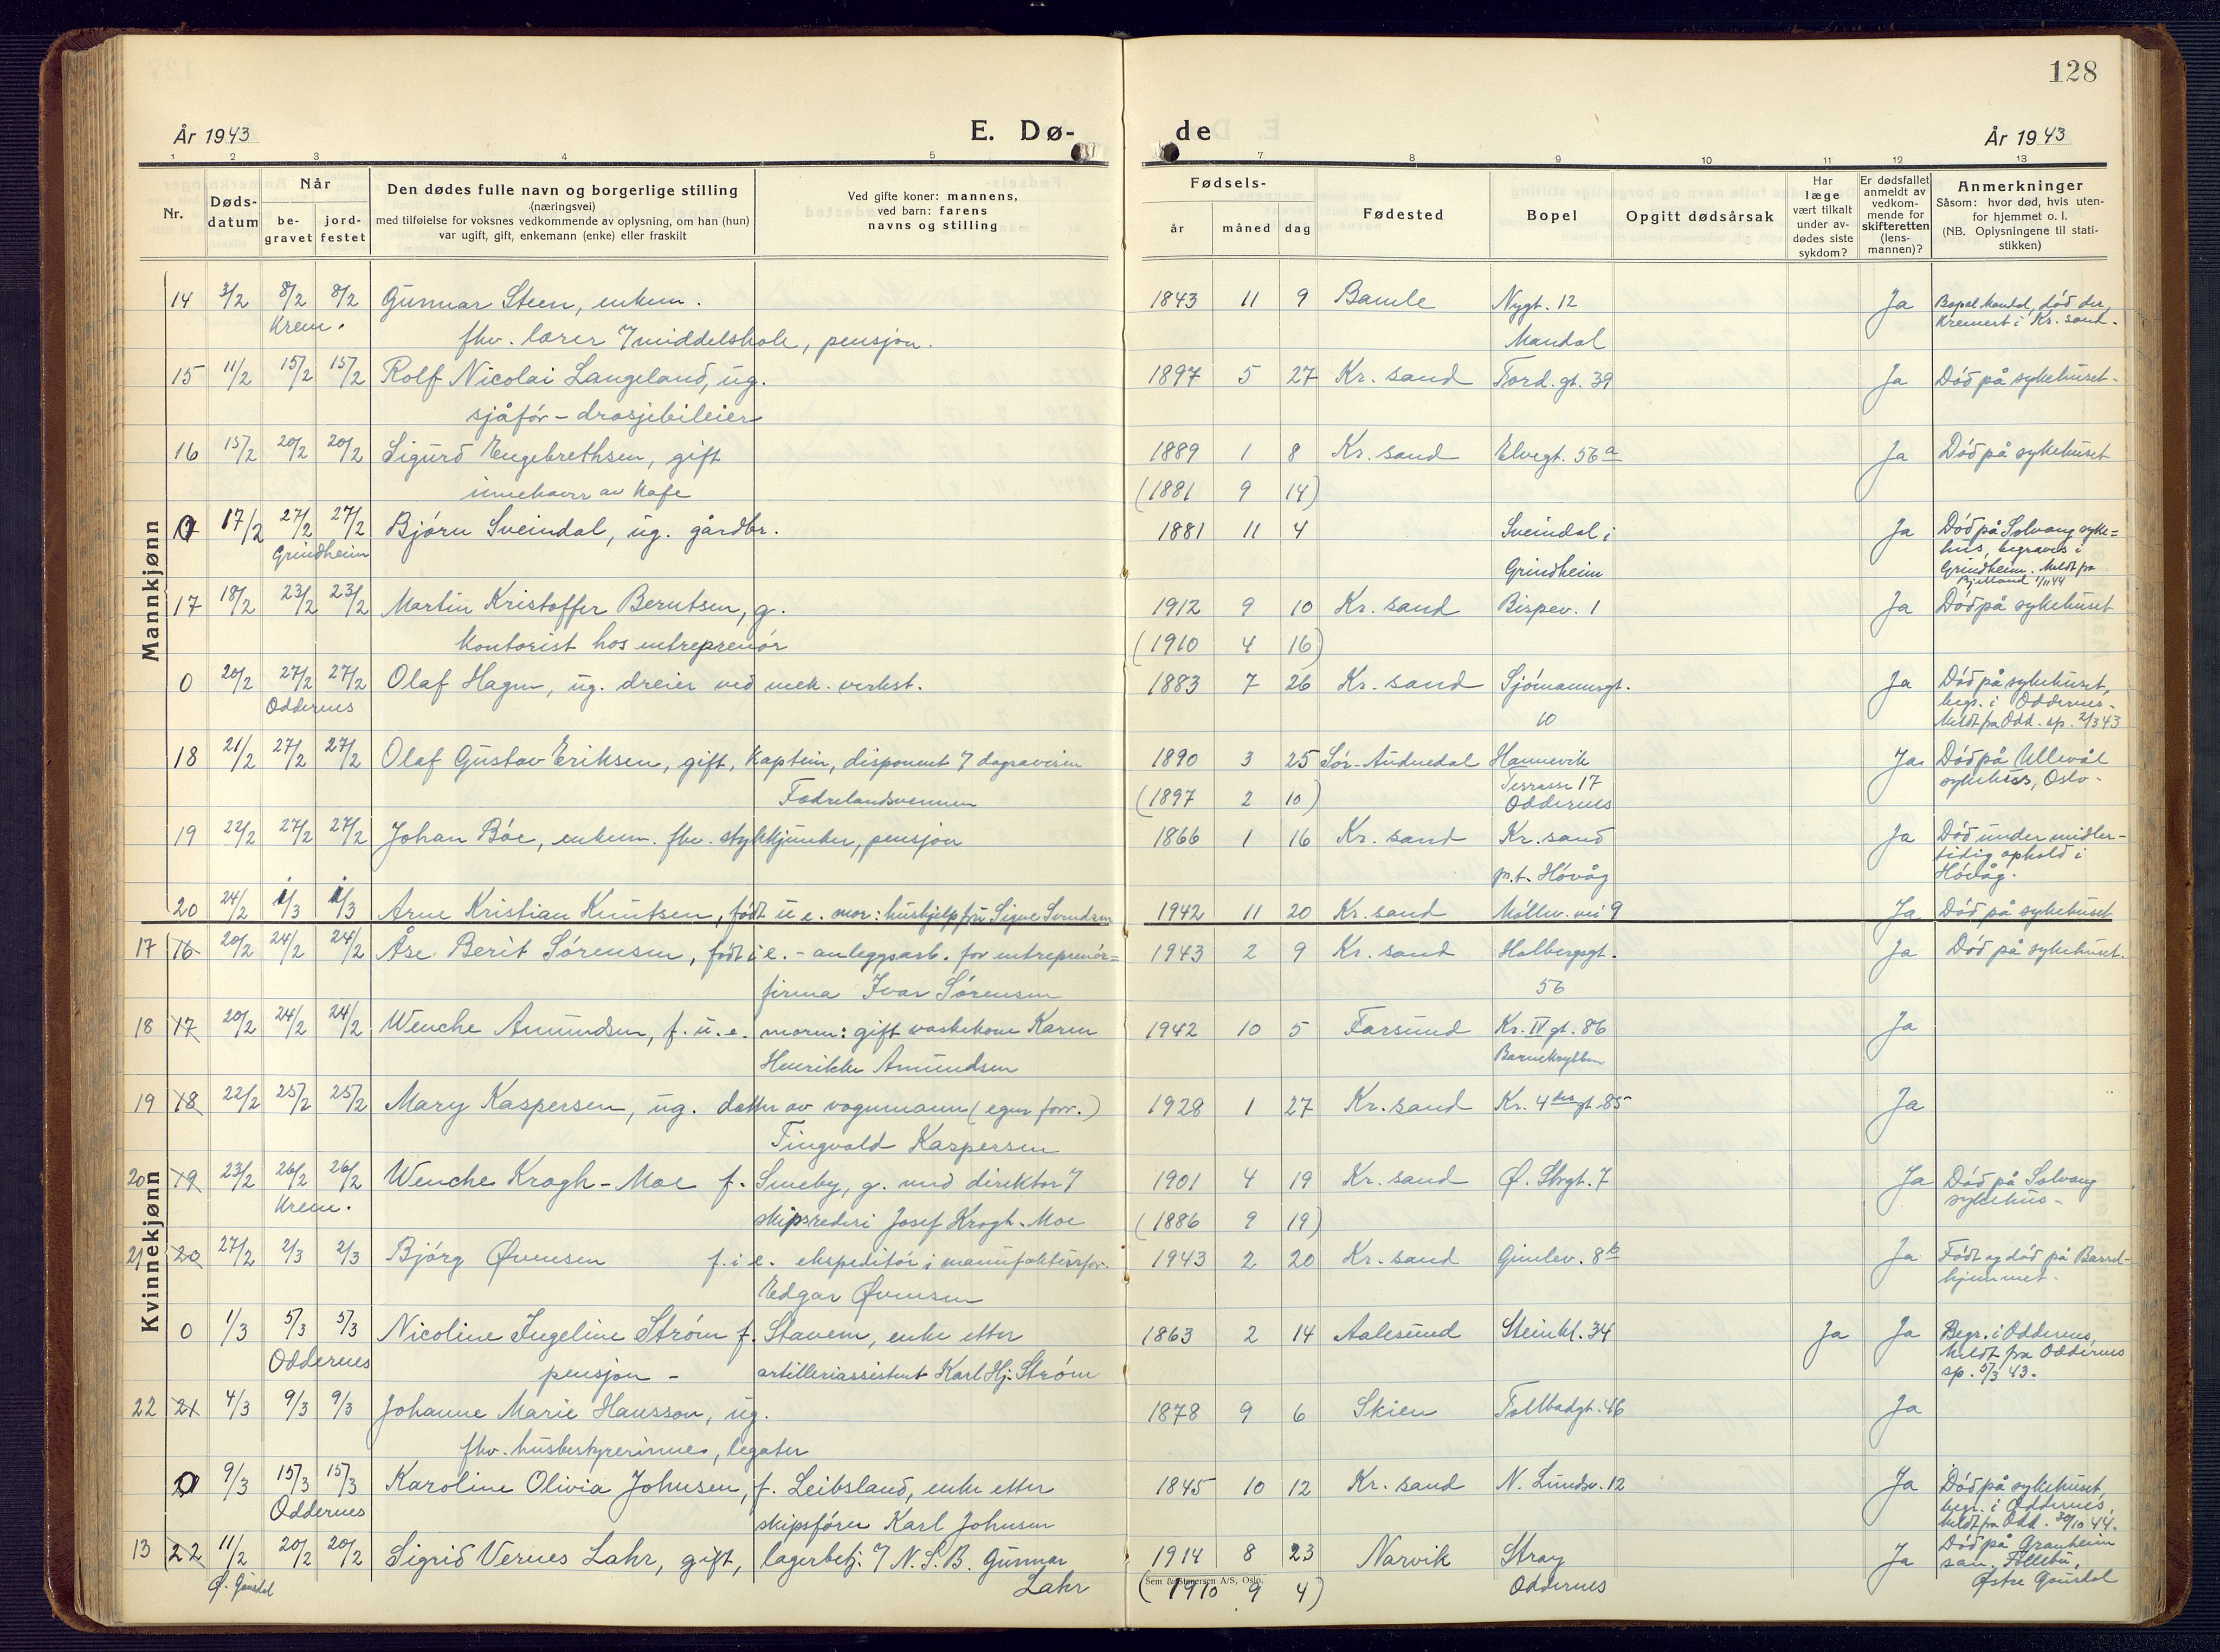 128
År 1943
E. Dø-
de
År 1943
1 2 3 4 5 7 8 9 10 11 12 13
Nr.
Døds-
datum
Når
be-
gravet
jord-
festet
Den dødes fulle navn og borgerlige stilling
(næringsvei)
med tilføielse for voksnes vedkommende av oplysning, om han (hun)
var ugift, gift, enkemann (enke) eller fraskilt
Ved gifte koner: mannens,
ved barn: farens
navns og stilling
Fødsels-
år måned dag
Fødested
Bopel
Opgitt dødsårsak
Har
læge
vært tilkalt
under av-
dødes siste
sykdom?
Er dødsfallet
anmeldt av
vedkom-
mende for
skifteretten
(lens-
mannen)?
Anmerkninger
Såsom: hvor død, hvis uten-
for hjemmet o. l.
(NB. Oplysningene til stati-
stikken)
Mannkjønn
14 3/2 8/2 8/2 Gunnar Steen, enkem. 1843 11 9 Bamle Nygt. 12 Ja Bopel Mandal, død der,
Krem. fhv. lærer 7 middelskole, pensjon. Mandal kremert i Kr. sand.
15 11/2 15/2 15/2 Rolf Nicolai Langeland, ug. 1897 5 27 Kr. sand Tord. gt. 39 Ja Død på sykehuset.
sjåfør - drosjebileier
16 15/2 20/2 20/2 Sigurd Engebrethsen, gift 1889 1 8 Kr. sand Elvegt. 56 a Ja Død på sykehuset
innehaver av Kafe (1881 9 14)
0 17/2 27/2 27/2 Bjørn Sveindal, ug. gårdbr. 1881 11 4 Sveindal i Ja Død på Solvang syke=
Grindheim Grindheim hus, begraves i
Grindheim. Meldt fra
Bjelland 1/11 44
17 18/2 23/2 23/2 Martin Kristoffer Berntsen, g. 1912 9 10 Kr. sand Bispev. 1 Ja Død på sykehuset
kontorist hos entreprenør (1910 4 16)
0 20/2 27/2 27/2 Olaf Hagen, ug. dreier ved mek. verkst. 1883 7 26 Kr. sand Sjømannsgt. Ja Død på sykehuset,
Oddernes 10 begr. i Oddernes.
Meldt fra Odd. sp. 2/3 43
18 21/2 27/2 27/2 Olaf Gustav Eriksen, gift, Kaptein, disponent 7 dagsavisen 1890 3 25 Sør-Audnedal Hannevik Ja Død på Ullevål
Fædrelandsvennen (1897 2 10) Terrasse 17 sykehus, Oslo -
Oddernes
19 22/2 27/2 27/2 Johan Bøe, enkem. fhv. stykkjunker, pensjon 1866 1 16 Kr. sand Kr. sand Ja Død under midler-
p.t. Høvåg tidig ophold i
Høvåg.
20 24/2 1/3 1/3 Arne Kristian Knutsen, født u. e. mor: hushjelp frk Signe Svendsen 1942 11 20 Kr. sand Møllev. vei 9 Ja Død på sykehuset
Kvinnekjønn
17 16 20/2 24/2 24/2 Åse Berit Sørensen, født i e. - anleggsarb. for entreprenør= 1943 2 9 Kr. sand Holbergsgt. Ja Død på sykehuset.
firma Ivar Sørensen 56
18 17 20/2 24/2 24/2 Wenche Amundsen, f. u. e. moren: gift vaskekone Karen 1942 10 5 Farsund Kr. IV gt. 86 Ja
Henrikke Amundsen Barnekrybben
19 18 22/2 25/2 25/2 Mary Kaspersen, ug. datter av vognmann (egen forr.) 1928 1 27 Kr. sand Kr. 4des gt. 85 Ja
Tingvald Kaspersen
20 19 23/2 26/2 26/2 Wenche Krogh-Moe f. Smeby, g. med direktør 7 1901 4 19 Kr. sand Ø. Strgt. 7 Ja Død på Solvang
Krem. skipsrederi Josef Krogh-Moe (1886 9 19) sykehus -
21 20 27/2 2/3 2/3 Bjørg Øvensen f. i e. ekspeditør i manufakturforr. 1943 2 20 Kr. sand Gimlev. 8 b Ja Født og død på Barsel-
Edgar Øvensen hjemmet.
0 1/3 5/3 5/3 Nicoline Ingeline Strøm f. Stavem, enke etter 1863 2 14 Aalesund Steinkl. 34 Ja Ja Begr. i Oddernes,
Oddernes pensjon - artilleriassistent Karl Hj. Strøm Meldt fra Oddernes
sp. 5/3 43.
22 21 4/3 9/3 9/3 Johanne Marie Hansson, ug. 1878 9 6 Skien Tollbodgt. 46 Ja
fhv. husbestyrerinne, legater
0 9/3 15/3 15/3 Karoline Olivia Johnsen, f. Leibsland, enke etter 1845 10 12 Kr. sand N. Lundsv. 12 Ja Død på sykehuset,
Oddernes skipsfører Karl Johnsen begr. i Oddernes,
Meldt fra Odd. 30/10 44.
13 22 11/2 20/2 20/2 Sigrid Vernes Lahr, gift, lagerbetj. 7 N. S. B. Gunnar 1914 8 23 Narvik Stray Ja Død på Granheim
Ø. Gausdal Lahr (1910 9 4) Oddernes san. Follebu,
Østre Gausdal
Sem & Stenersen A/S, Oslo.